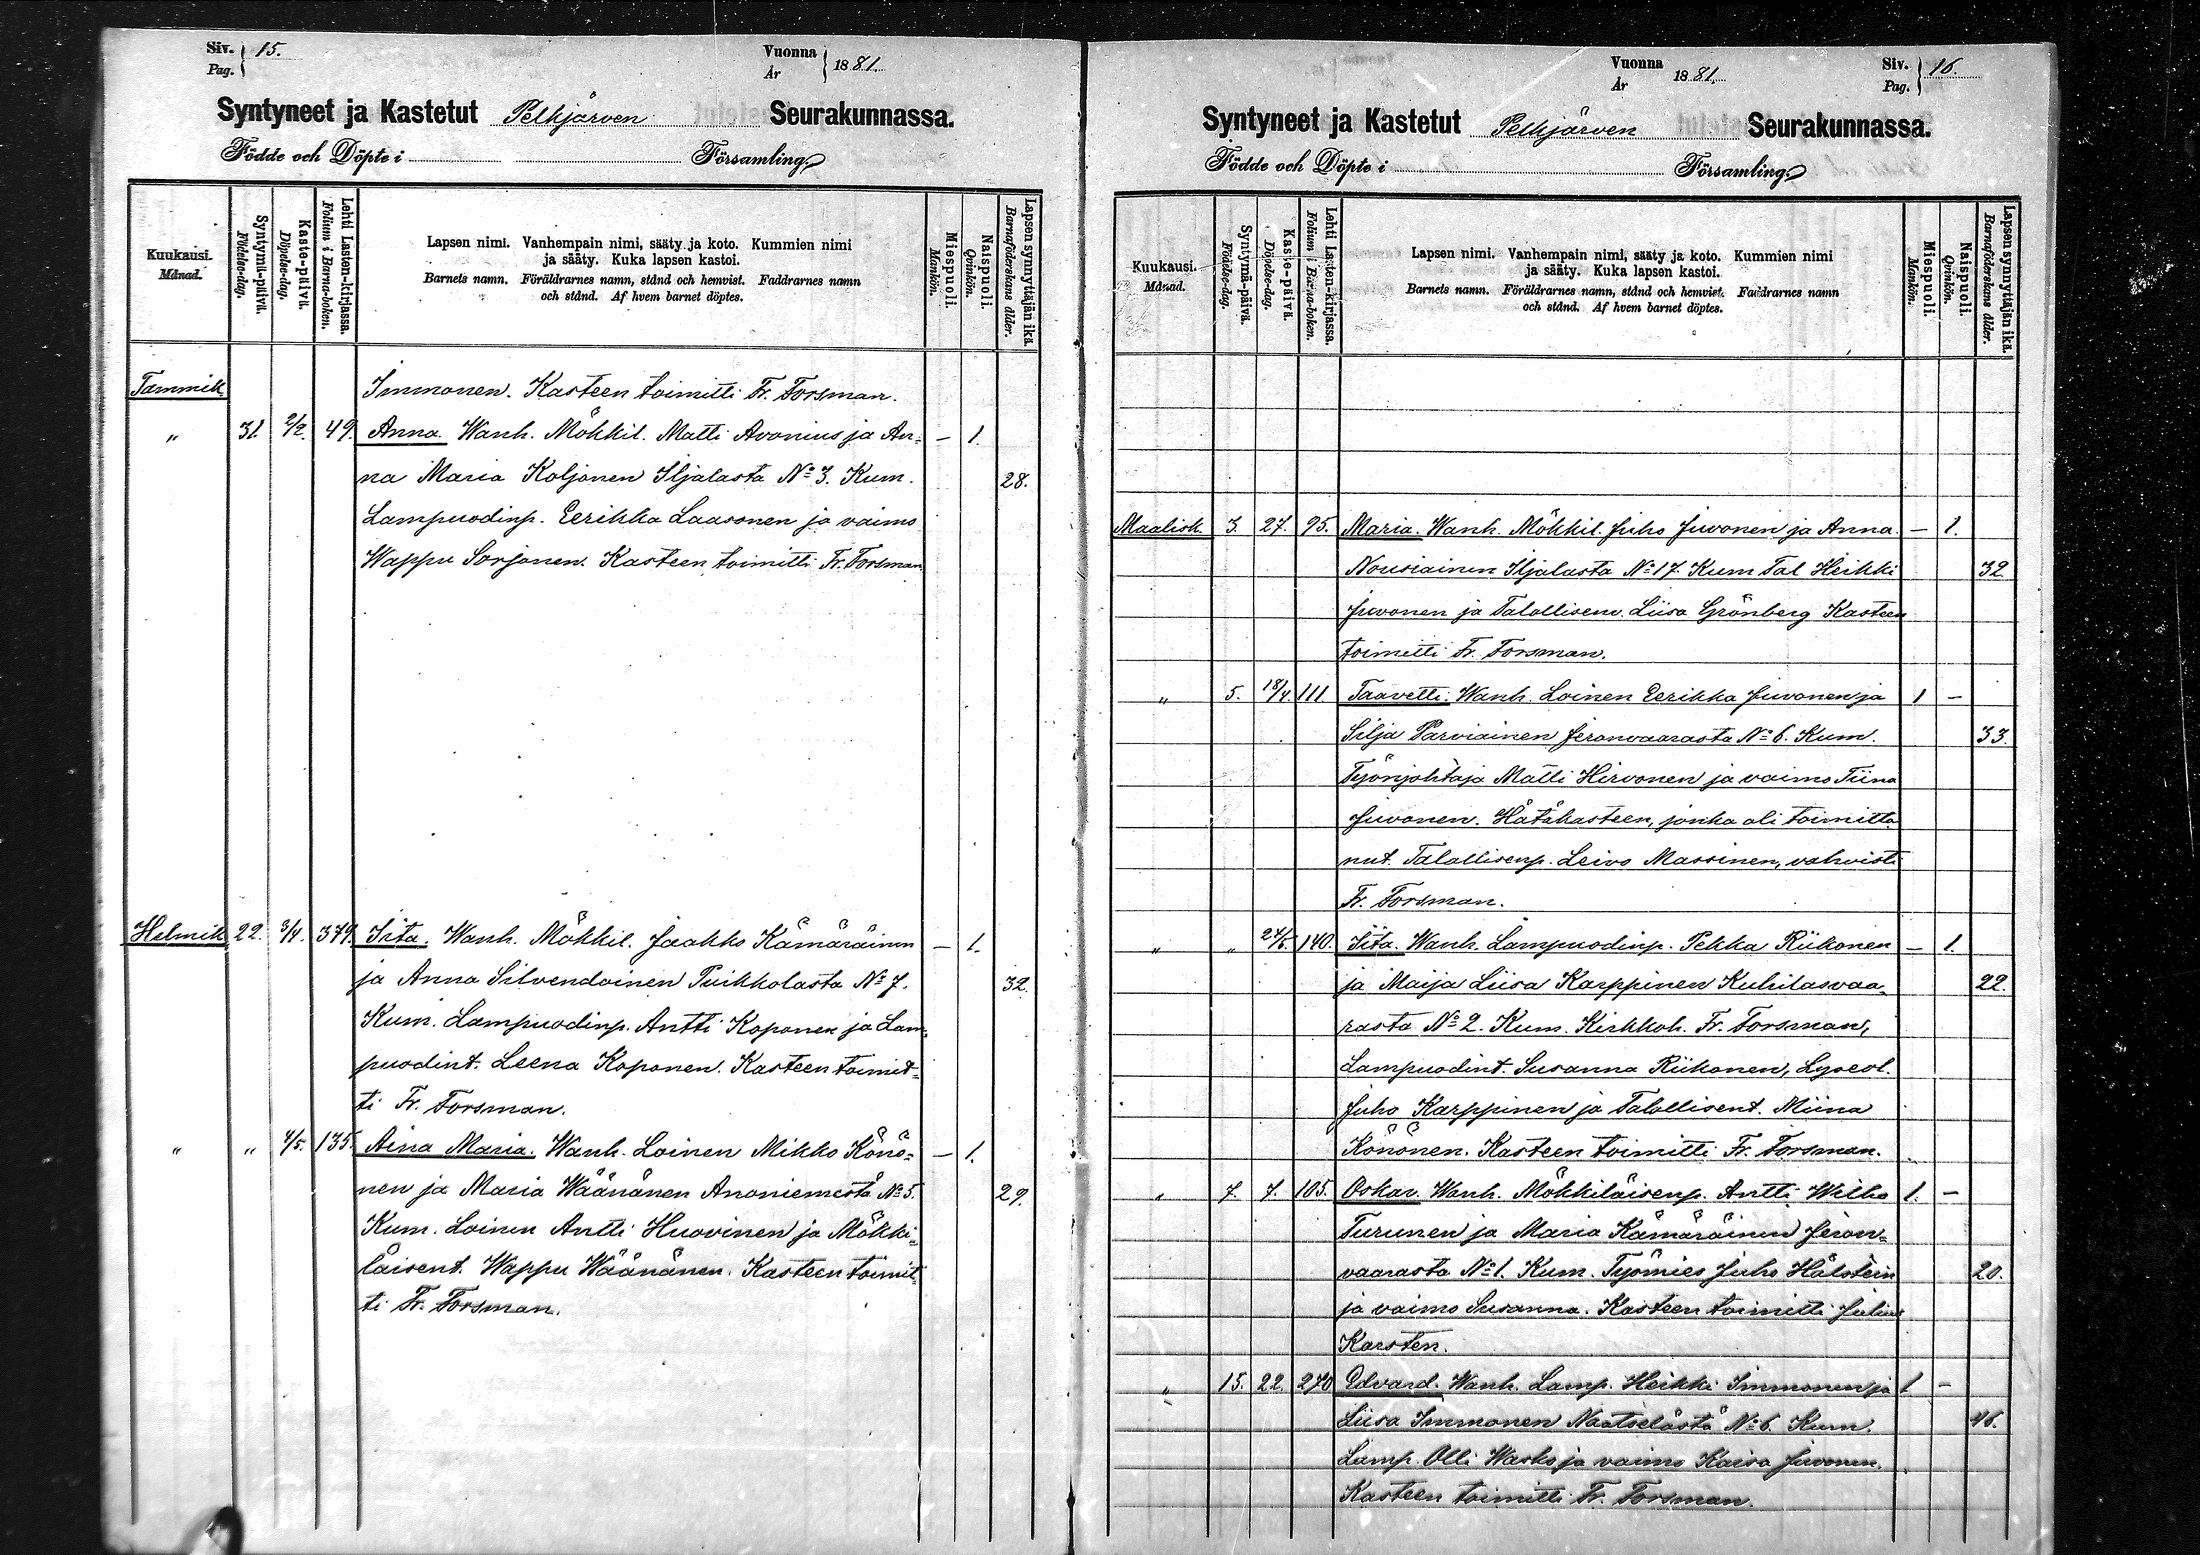 Siv. 15.
Pag.
Vuonna 1881.
År
Syntyneet ja Kastetut Pelkjärven Seurakunnassa.
Födde och Döpte i Församling.
Kuukausi.
Månad.
Syntymä-päivä.
Födelse-dag.
Kaste-päivä.
Döpelse-dag.
Lehti Lasten-kirjassa.
Folium i Barna-boken.
Lapsen nimi. Vanhempain nimi, sääty ja koto. Kummien nimi
ja sääty. Kuka lapsen kastoi.
Barnets namn. Föräldrarnes namn, stånd och hemvist. Faddrarnes namn
och stånd. Af hvem barnet döptes.
Miespuoli.
Mankön.
Naispuoli.
Qvinkön.
Lapsen synnyttäjän ikä.
Barnaföderskans ålder.
Tammik. Immonen. Kasteen toimitti Fr. Forsman.
" 31. 2/2. 49. Anna. Wanh. Mökkil. Matti Avonius ja An- — 1.
na Maria Koljonen Iljalasta No 3. Kum. 28.
Lampuodinp. Eerikka Laasonen ja vaimo
Wappu Sorjonen. Kasteen toimitti Fr. Forsman
Helmik 22. 3/4. 379. Iita. Wanh. Mökkil. Jaakko Kämäräinen — 1.
ja Anna Silvendoinen Puikkolasta No 7. 32.
Kum. Lampuodinp. Antti Koponen ja Lam-
puodint. Leena Koponen. Kasteen toimit-
ti Fr. Forsman.
" " 4/5. 135. Aina Maria. Wanh. Loinen Mikko Könö- — 1.
nen ja Maria Wäänänen Anoniemestä No 5. 29.
Kum. Loinen Antti Huovinen ja Mökki-
läisent. Wappu Wäänänen. Kasteen toimit-
ti Fr. Forsman.
Vuonna 1881.
År
Siv. 16.
Pag.
Syntyneet ja Kastetut Pelkjärven Seurakunnassa.
Födde och Döpte i Församling.
Kuukausi.
Månad.
Syntymä-päivä.
Födelse-dag.
Kaste-päivä.
Döpelse-dag.
Lehti Lasten-kirjassa.
Folium i Barna-boken.
Lapsen nimi. Vanhempain nimi, sääty ja koto. Kummien nimi
ja sääty. Kuka lapsen kastoi.
Barnets namn. Föräldrarnes namn, stånd och hemvist. Faddrarnes namn
och stånd. Af hvem barnet döptes.
Miespuoli.
Mankön.
Naispuoli.
Qvinkön.
Lapsen synnyttäjän ikä.
Barnaföderskans ålder.
Maalisk. 3. 27. 95. Maria. Wanh. Mökkil. Juho Juvonen ja Anna — 1.
Nousiainen Iljalasta No 17. Kum Tal Heikki 32
Juvonen ja Talollisenv. Liisa Grönberg Kasteen
toimitti Fr. Forsman.
" 5. 18/4. 111. Taavetti. Wanh. Loinen Eerikka Juvonen ja 1 —
Silja Parviainen Jeronvaarasta No 6. Kum. 33.
Työnjohtaja Matti Hirvonen ja vaimo Tiina
Juvonen. Hätäkasteen, jonka oli toimitta
nut Talollisenp. Leivo Massinen, vahvisti
Fr. Forsman.
" " 24/5. 140. Iita. Wanh. Lampuodinp. Pekka Riikonen — 1.
ja Maija Liisa Karppinen Kuhilasvaa- 22.
rasta No 2. Kum. Kirkkoh. Fr. Forsman,
Lampuodint. Susanna Riikonen, Lyseol.
Juho Karppinen ja Talollisent. Miina
Könönen. Kasteen toimitti Fr. Forsman.
" 7. 7. 105. Oskar. Wanh. Mökkiläisenp. Antti Wilho 1. —
Turunen ja Maria Kämäräinen Jeron-
vaarasta No 1. Kum. Työmies Juho Hälstein 20.
ja vaimo Susanna. Kasteen toimitti Julius
Karsten.
" 15. 22. 270 Edvard. Wanh. Lamp. Heikki Immonen ja 1 —
Liisa Immonen Naatselästä No 6. Kum. 46.
Lamp. Olli Wasko ja vaimo Kaisa Juvonen.
Kasteen toimitti Fr. Forsman.